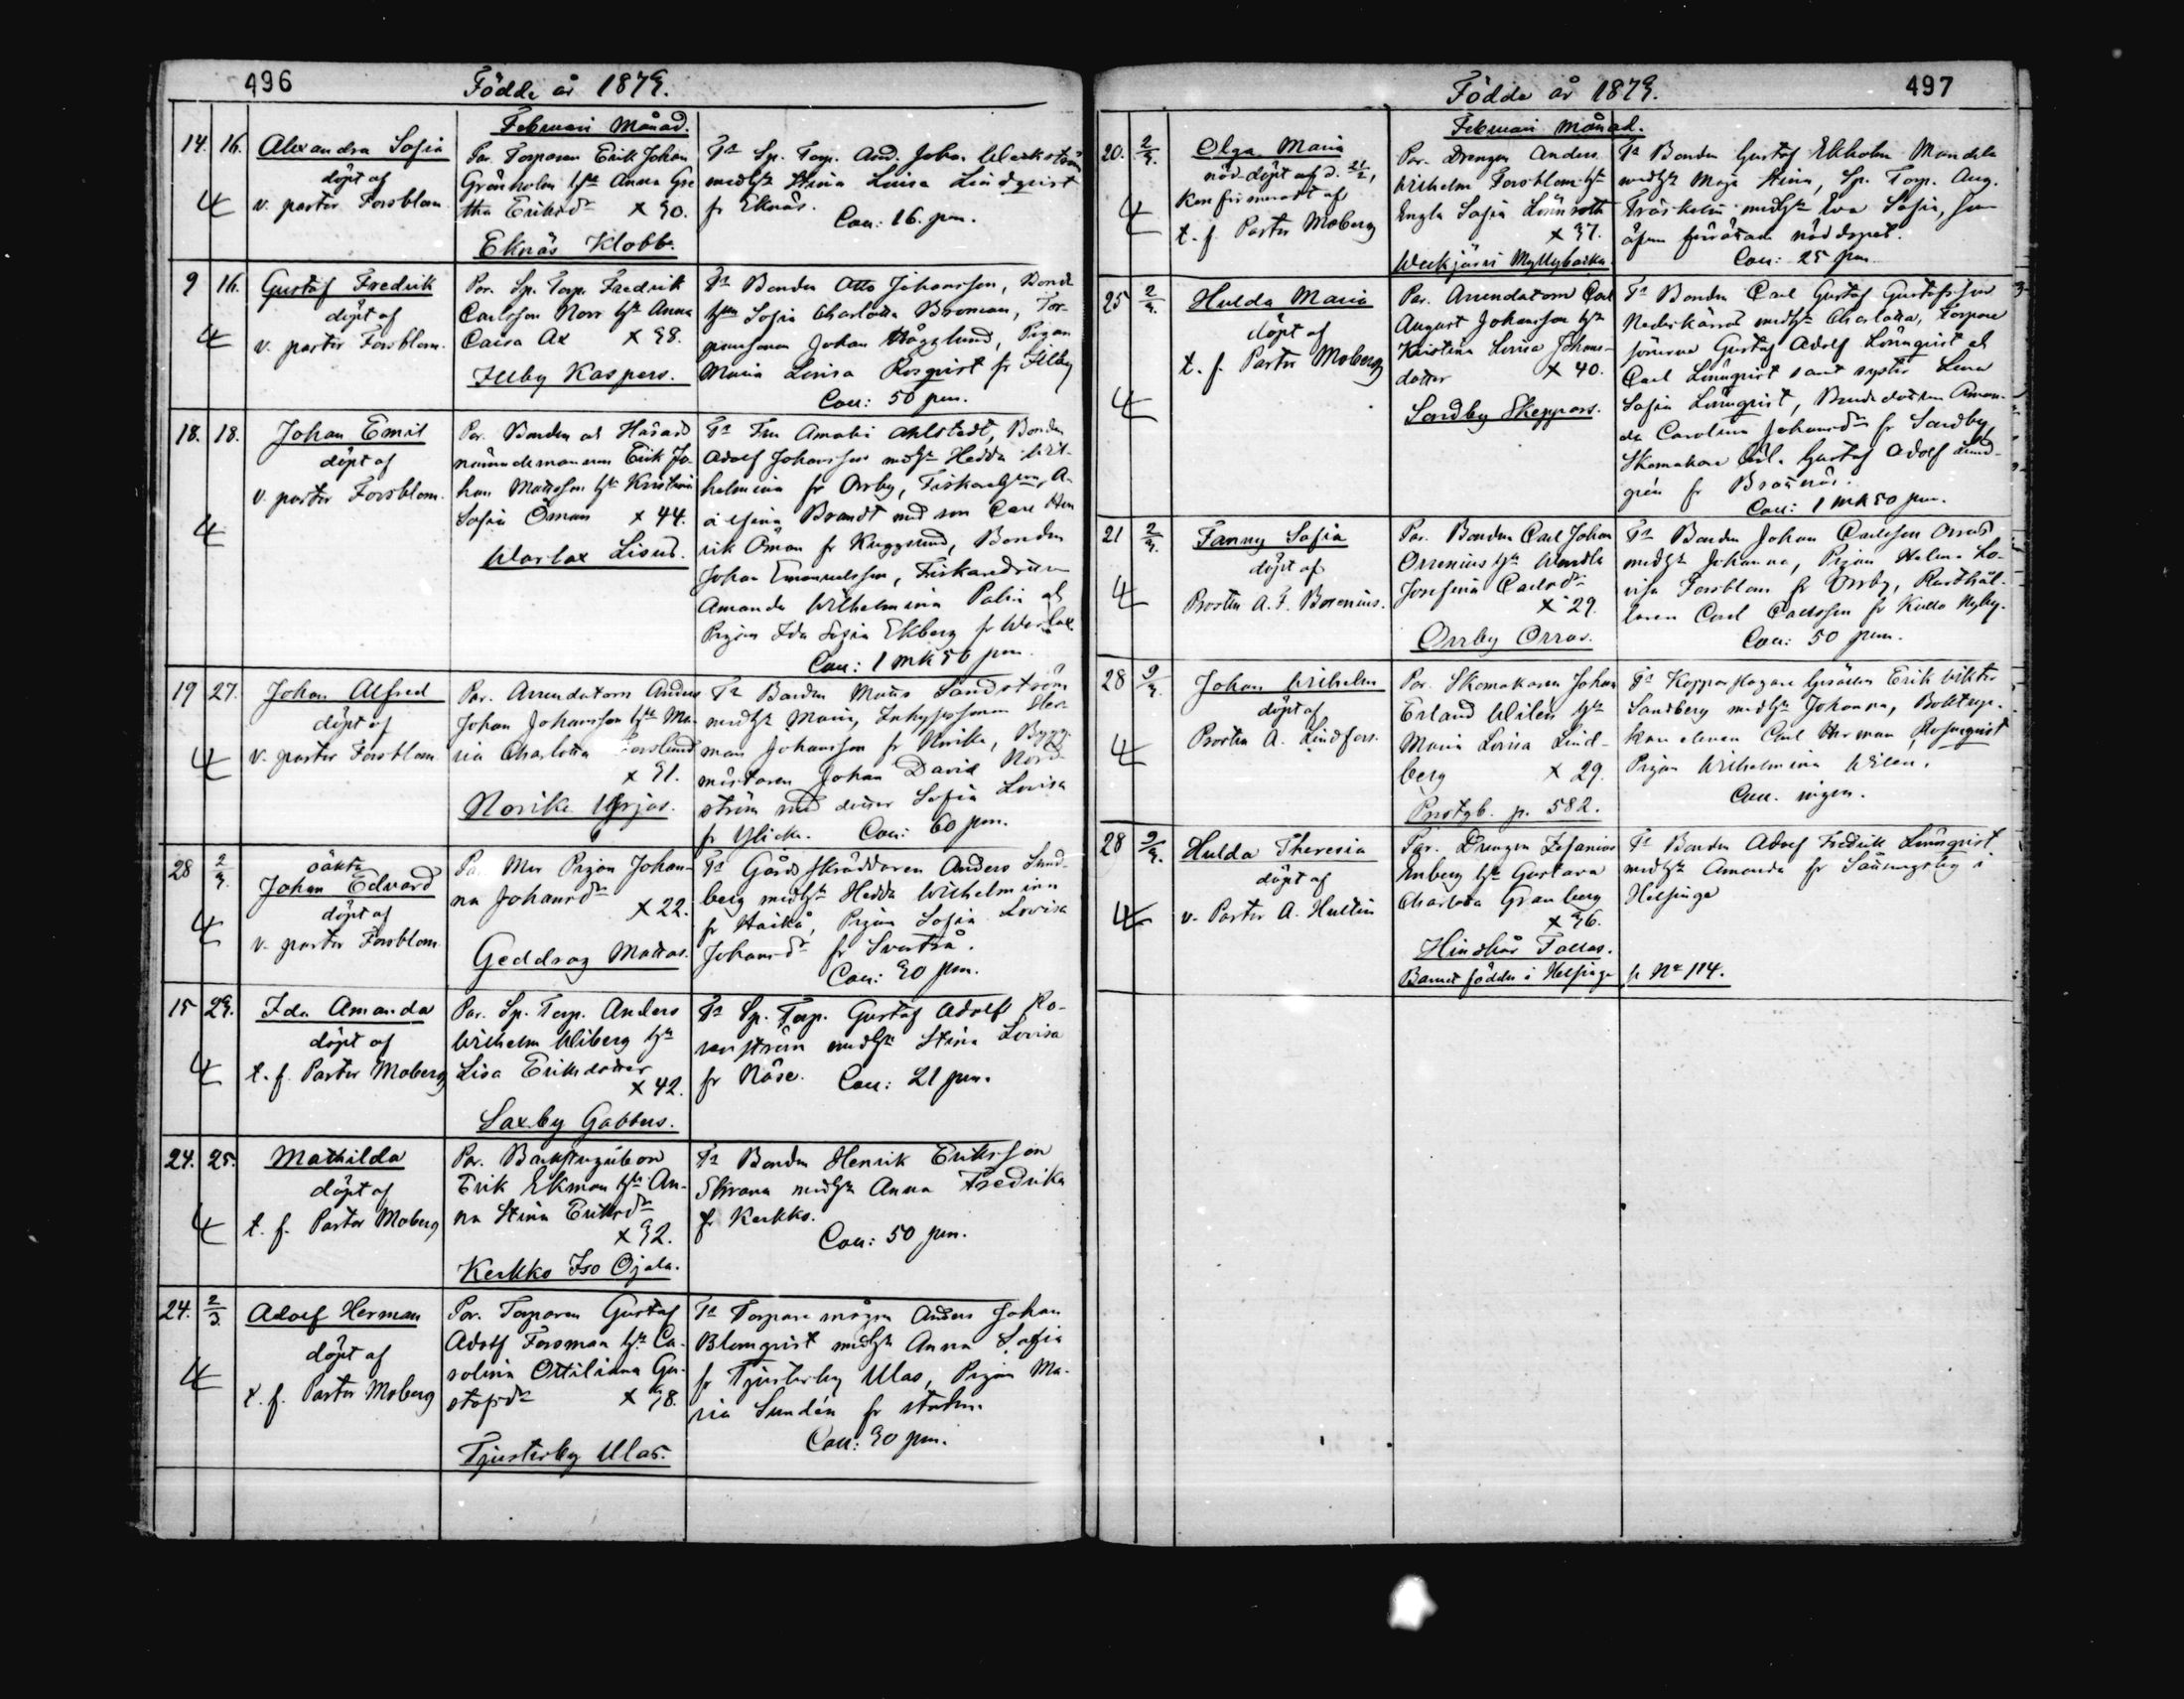 496
Födde år 1879.
Februari Månad.
14. 16. Alexandra Sofia
döpt af
v. pastor Forsblom
Par. Torparen Erik Johan
Grönholm hu Anna Gre
tha Eriksdr x 30.
Eknäs Klobb.
Tr Sp. Torp. And. Johan Weckström
med hu Stina Luisa Lindqvist
fr Eknäs.
Coll: 16. pm.
9 16. Gustaf Fredrik
döpt af
v. pastor Forsblom.
Par. Sp. Torp. Fredrik
Carlsson Norr hu Anna
Caisa Ax x 38.
Illby Kaspers.
Tr Bonden Otto Johansson, Bond
hun Sofia Charlotta Broman, Tor-
paresonen Johan Hägglund, Pigan
Maria Lovisa Rosqvist fr Illby
Coll: 50 pm.
18. 18. Johan Emil
döpt af
v. pastor Forsblom.
Par. Bonden och Härads
nämndemannen Erik Jo-
han Mattsson hu Kristina
Sofia Öman x 44.
Warlax Lisas.
Tr Fru Amalia Ahlstedt, Bonden
Adolf Johansson med hu Hedda Wil-
helmina fr Orrby,
Brandt med son Carl Hen
rik Öman fr Kuggsund, Bonden
Johan Emanuelsson,
Amanda Wilhelmina Palin och
Pigan Ida Sofia Ekberg fr Warlax
Coll: 1 mk 50 pm.
19 27. Johan Alfred
döpt af
v. pastor Forsblom
Par. Arrendatorn Anders
Johan Johansson hu Ma-
ria Charlotta Forslund
x 31.
Norike Yrjas.
Tr Bonden Matts Sandström
med hu Maria, Inhysessonen Her
man Johansson fr Norike, Bygg-
mästaren Johan David Nord-
ström med dotter Sofia Lovisa
fr Ylike. Coll: 60 pm.
28 2/3. oäkta
Johan Edvard
döpt af
v. pastor Forsblom
Par. Mor Pigan Johan-
na Johansdr
x 22.
Geddrag Mattas.
Tr Gårdsskräddaren Anders Lind-
berg med hu Hedda Wilhelmina
fr Haikå, Pigan Sofia Lovisa
Johansdr fr Svartså.
Coll: 30 pm.
15 23. Ida Amanda
döpt af
t. f. Pastor Moberg
Par. Sp. Torp. Anders
Wilhelm Wiberg hu
Lisa Eriksdotter
x 42.
Saxby Gabbus.
Tr Sp. Torp. Gustaf Adolf Ro-
senström med hu Stina Lovisa
fr Näse. Coll: 21 pm.
24. 25. Mathilda
döpt af
t. f. Pastor Moberg
Par. Backstugubon
Erik Ekman hu An-
na Stina Eriksdr
x 32.
Kerkko Iso Ojala.
Tr Bonden Henrik Eriksson
med hu Anna Fredrika
fr Kerkko.
Coll: 50 pm.
24. 2/3. Adolf Herman
döpt af
t. f. Pastor Moberg
Par. Torparen Gustaf
Adolf Forsman hu Ca-
rolina Ottiliana Gu-
stafsdr x 38.
Tjusterby Ulas.
Tr Torpare mågen Anders Johan
Blomqvist med hu Anna Sofia
fr Tjusterby Ulas, Pigan Ma-
ria Sundén fr staden.
Coll: 30 pm.
497
Födde år 1879.
Februari månad.
20. 2/3. Olga Maria
nöd-döpt af d. 21/2,
Konfirmeradt af
t. f. Pastor Moberg
Par. Drengen Anders
Wilhelm Forsblom hu
Engla Sofia Lönnroth
x 37.
Weckjärvi Myllybacka.
Tr Bonden Gustaf Ekholm Mandela
med hu Maja Stina, Sp. Torp. Aug.
Träskelin med hu Eva Sofia, som
äfven förrättade nöddopet.
Coll: 25 pm.
25 2/3. Hulda Maria
döpt af
t. f. Pastor Moberg
Par. Arrendatorn Carl
August Johansson hu
Kristina Lovisa Johans-
dotter x 40.
Sondby Skeppars.
Tr Bonden Carl Gustaf Gustafsson
med hu Charlotta, Torpare
sönerna Gustaf Adolf Lönnqvist och
Carl Lönnqvist samt syster Lena
Sofia Lönnqvist, Bondedottern Aman-
da Carolina Johansdr fr Sondby,
Skomakare Gustaf Adolf Lind-
grén fr
Coll: 1 mk 50 pm.
21 2/3. Fanny Sofia
döpt af
Prosten A. F. Borenius.
Par. Bonden Carl Johan
Orrenius hu Wendla
Josefina Carlsdr
x 29.
Orrby Orras.
Tr Bonden Johan Carlsson Orras
med hu Johanna, Pigan Helena Lo-
visa Forsblom fr Orrby, Rusthål-
laren Carl Carlsson fr Kullo Nyby.
Coll: 50 pm.
28 9/3. Johan Wilhelm
döpt af
Prosten A. Lindfors.
Par. Skomakaren Johan
Erland Wilén hu
Maria Lovisa Lind-
berg x 29.
Prostgb. p. 582.
Tr Kopparslagare Gesällen Erik Viktor
Sandberg med hu Johanna, Boktryc-
kare eleven Carl Herman Rosenqvist
Pigan Wilhelmina Wilén.
Coll. ingen.
28 9/3. Hulda Theresia
döpt af
v. Pastor A. Hultin
Par. Drengen Zefanias
Enberg hu Gustava
Charlotta Granberg
x 36.
Hindhår Tallas.
Barnet föddes i Helsinge fr No 114.
Tr Bonden Adolf Fredrik Lönnqvist
med hu Amanda fr i
Helsinge